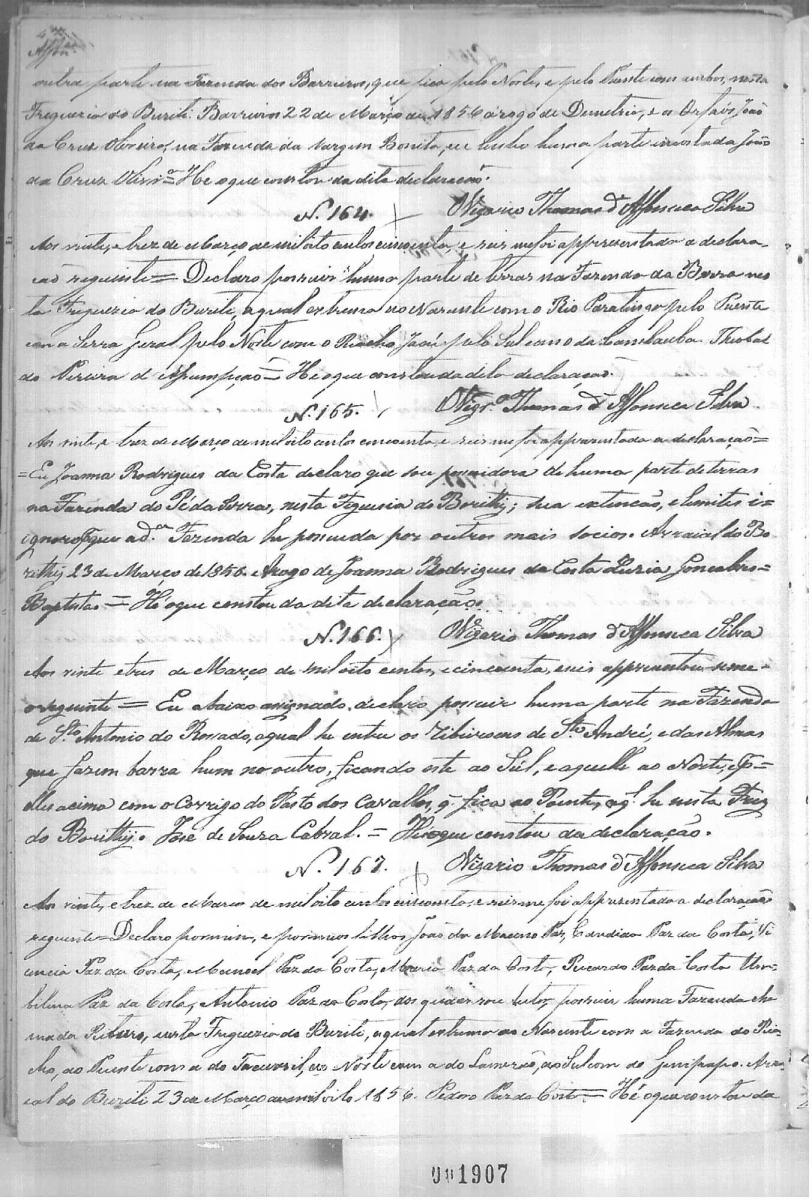 outra parte na Fazenda dos Barreiros, que fica pelo Norte, e pelo Puente com ambos, nesta
Freguezia do Buriti. Barreiros 22 de Março de 1856 a rogo de Demetrio, e os Orfãos, João
da Cruz Oliveira, na Fazenda da Vargem Bonita, eu tenho huma parte João
da Cruz Olivrª = He o que constou da dita declaração.
N. 164. Vigario Thomas d'Affonseca Silva
Aos vinte, e trez de Março de mil oito centos cincoenta, e seis me foi appresentado a declara-
cão seguinte = Declaro possuir huma parte de terras na Fazenda da Barra nes-
ta Freguezia do Buriti, a qual extrema ao Narcente com o Rio Paratinga pelo Puente
com a Serra Geral pelo Norte com o Riacho, pelo Sul com o da Theobal
do Pereira d'Assumpção = He o que constou da dita declaração.
N. 165. Vigrº Thomas d'Affonseca Silva
Aos vinte, e trez de Março de mil oito centos cincoenta, e seis me foi appresentado a declaração =
= Eu Joanna Rodrigues da Costa declaro que sou possuidora de huma parte de terras
na Fazenda do Pé da Serra, nesta Feguesia do Borithy; sua extenção, e limites i-
ignoro, que a dª Fazenda he possuida por outros mais socios. Arraial do Bo-
rithy 23 de Março de 1856. A rogo de Joanna Rodrigues da Costa Luzia Goncalves=
Baptista = He o que constou da dita declaração.
N. 166. Vigario Thomas d'Affonseca Silva
Aos vinte e tres de Março de mil oito centos, e cincoenta, e seis appresentou-se me-
o seguinte = Eu abaixo assignado, declaro possuir huma parte na Fazenda
de Stº Antonio do Rossado, a qual he entre os Ribeiroens de Stº André, e das Almas
que fazem barra hum no outro, ficando este ao Sul, e aquelle ao Norte,
acima com o Corrigo do Pasto dos Cavallos, q. fica ao Poente, a ql. he nesta Frega
do Borithy. José de Souza Cabral. = He o que constou da declaração.
N. 167. Vigario Thomas d'Affonseca Silva
Aos vinte, e trez de Março de mil oito centos cincoenta, e seis me foi appresentado a declaração
seguinte = Declaro por mim, e por meos filhos, João do Paz, Candida Paz da Costa, Vi
cencia Paz da Costa, Manoel Paz da Costa, Maria Paz da Costa, Ricardo Paz da Costa Um-
bilina Paz da Costa, Antonio Paz da Costa, dos quaes sou tutor, possuir huma Fazenda cha
mada Retiro, nesta Freguezia do Buriti, a qual extrema ao Narcente com a Fazenda do Ria-
cho, ao Puente com a do ao Norte com a do ao Sul com do Genipapo. Arra-
ial do Buriti 23 de Março de mil oito 1856. Pedro Paz da Costa = Hé o que constou da
001907